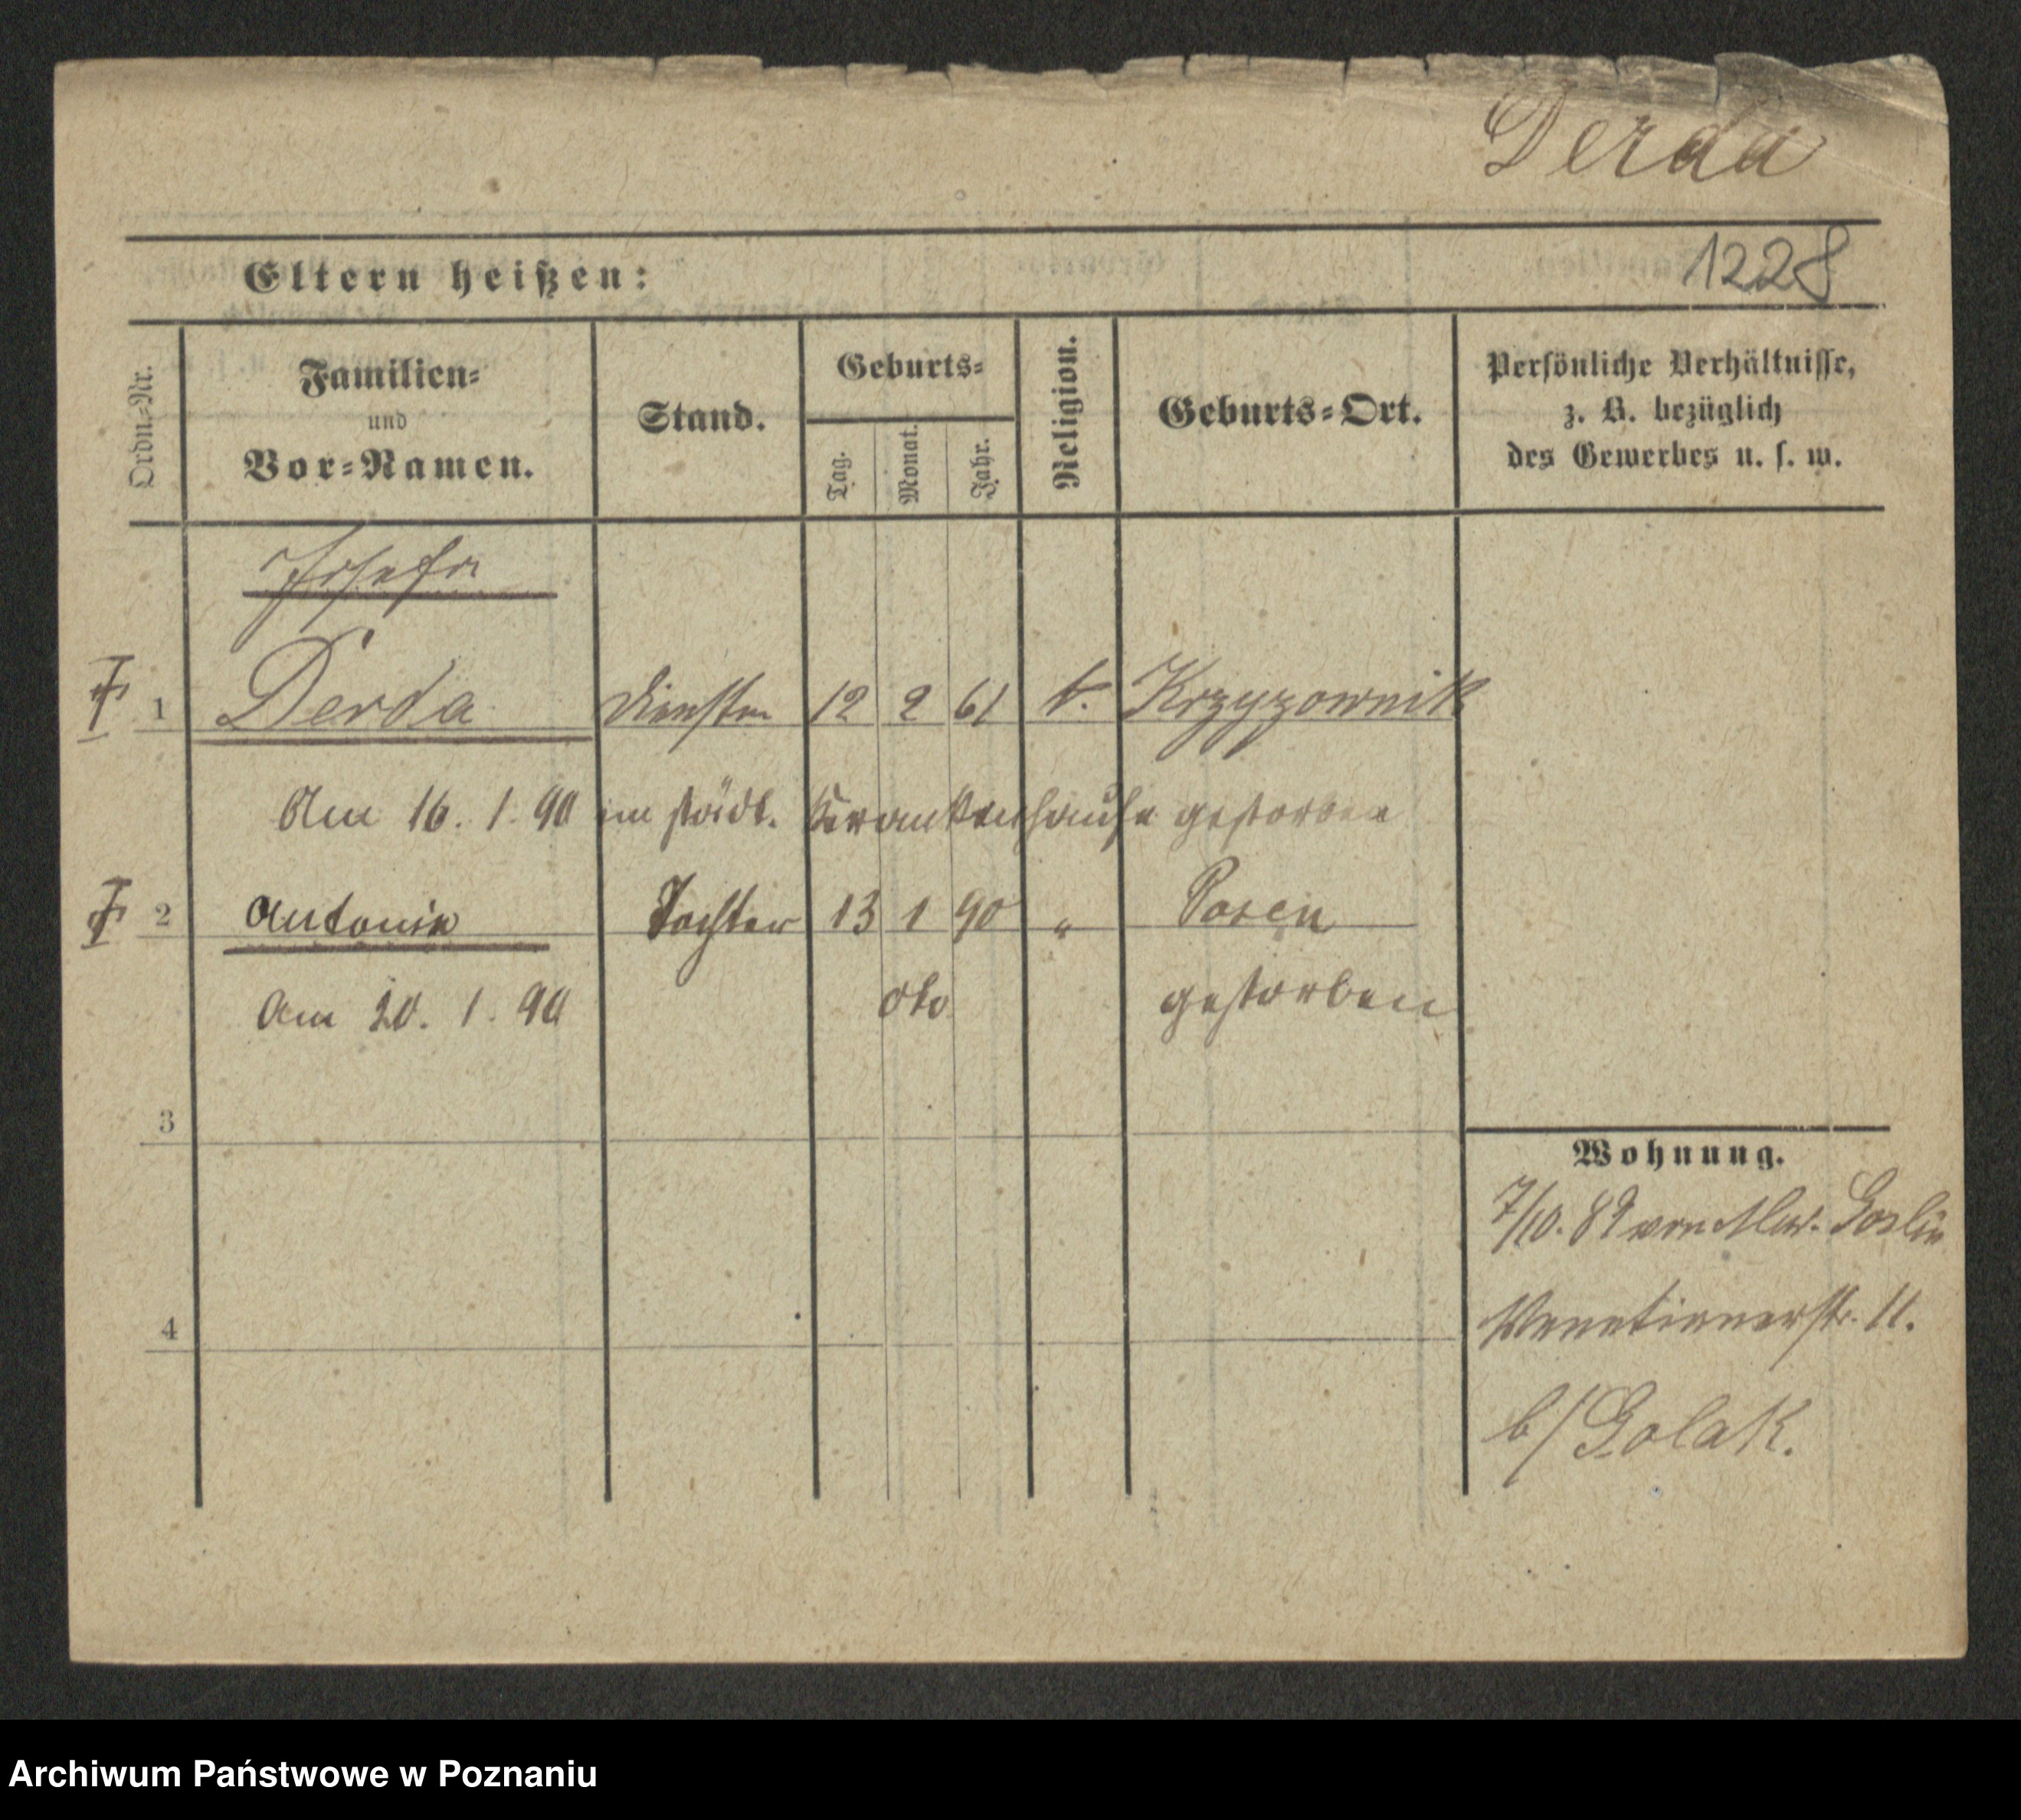 Derda
1228
Eltern heißen:
Ordn.=Nr.
Familien=
und
Vor=Namen.
Stand.
Geburts=
Tag.
Monat.
Jahr.
Religion.
Geburts=Ort.
Persönliche Verhältnisse,
z. B. bezüglich
des Gewerbes u. s. w.
Josefa
1 Derda 12 2 61 k. Krzyzownik
Am 16. 1. 90 im städt. Krankenhause gestorben
2 Antonie Tochter 13 1 90 " Posen
Am 20. 1. 90 dto gestorben
3
4
Wohnung.
7/10. 89 von Mur. Goslin
Venetianerstr. 11.
b/ Golak.
Archiwum Państwowe w Poznaniu